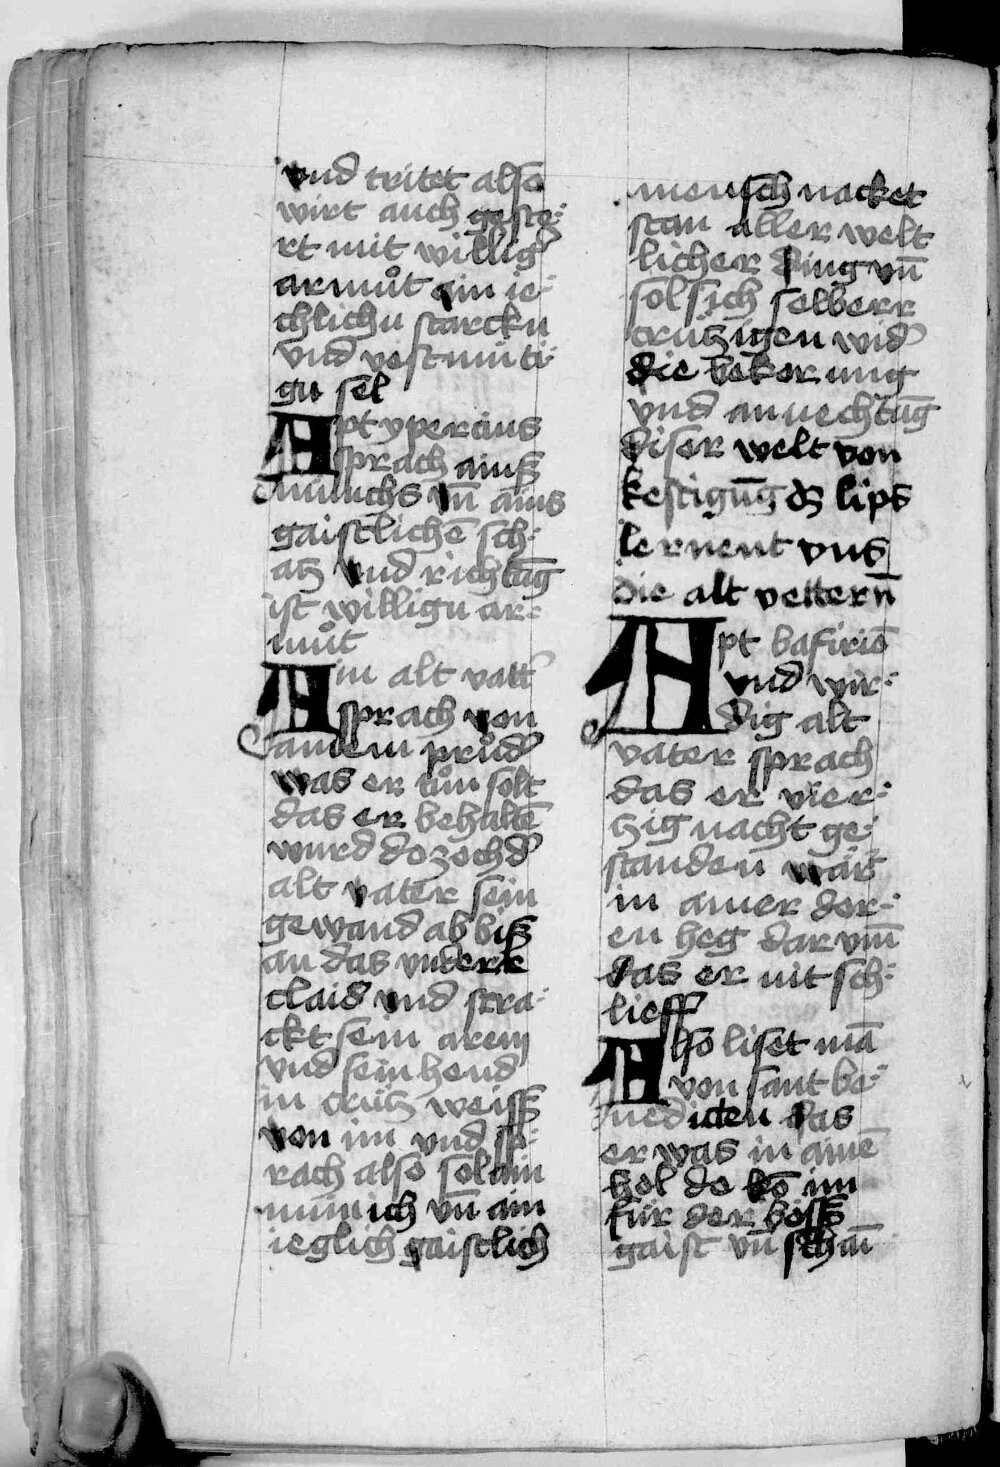 vnd tritet also
wirt auch geste⸗
rt mit willig̕
armůt ain ie⸗
chlichu starcku
vnd vestmüti⸗
gu sel
Apt ypercius
sprach ainß
münichs vn̄ ains
gaistlichē sch⸗
atz vnd richtūg
ist willigu ar⸗
můt
Ain alt vatt̕
sprach von
ainem průd̕
was er tůn solt
das er behaltē
wurd do zoch d̕
alt vater sein
gewand ab biß
an das vnderr
claid vnd stra⸗
ckt sein arem
vnd sein hend
in crütz weiß
von im vnd sp⸗
rach also sol ain
münich vn̄ ain
ieglich gaistlich
mensch nacket
stan aller welt
licher ding vn̄
sol sich selberr
crützigen wid̕
die bekorung
vnd anuechtūg
diser welt von
kestigūg dz lips
lernent vns
die alt vettern̄
Apt bafiriō
vnd wir⸗
dig alt
vater sprach
das er vier⸗
tzig nacht ge⸗
standen wär
in ainer dor⸗
en heg darvm̄
das er nit sch⸗
lieff
Also liset mā
von sant be⸗
nedicten das
er was in ainē
hol do kō im
für der böß
gaist vn̄ schai